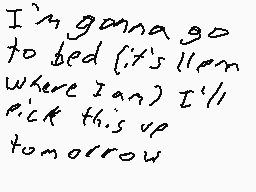 I'm gonna go
to bed (it's 11pm
where I am) I'll
pick this up
tomorrow